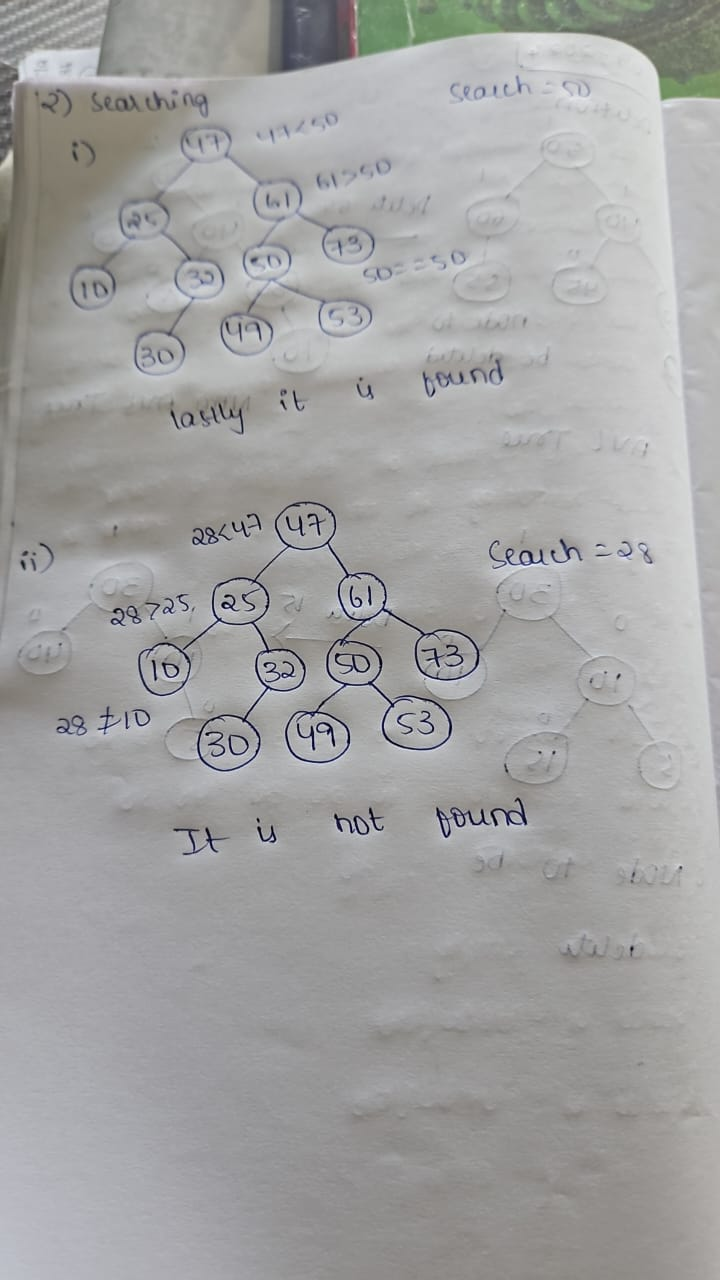 2) Searching
Search = 50
i)
47
47<50
25
61
61>50
10
32
50
73
50==50
30
49
53
lastly it is found
ii)
28<47
47
Search = 28
28>25
25
61
10
32
50
73
28≠10
30
49
53
It is not found